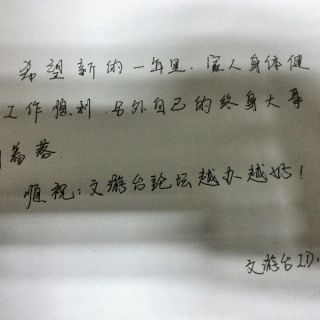 希望新的一年里，家人身体健
工作顺利，另外自己的终身大事
着落．
顺祝：文游台论坛越办越好！
文游台ID．